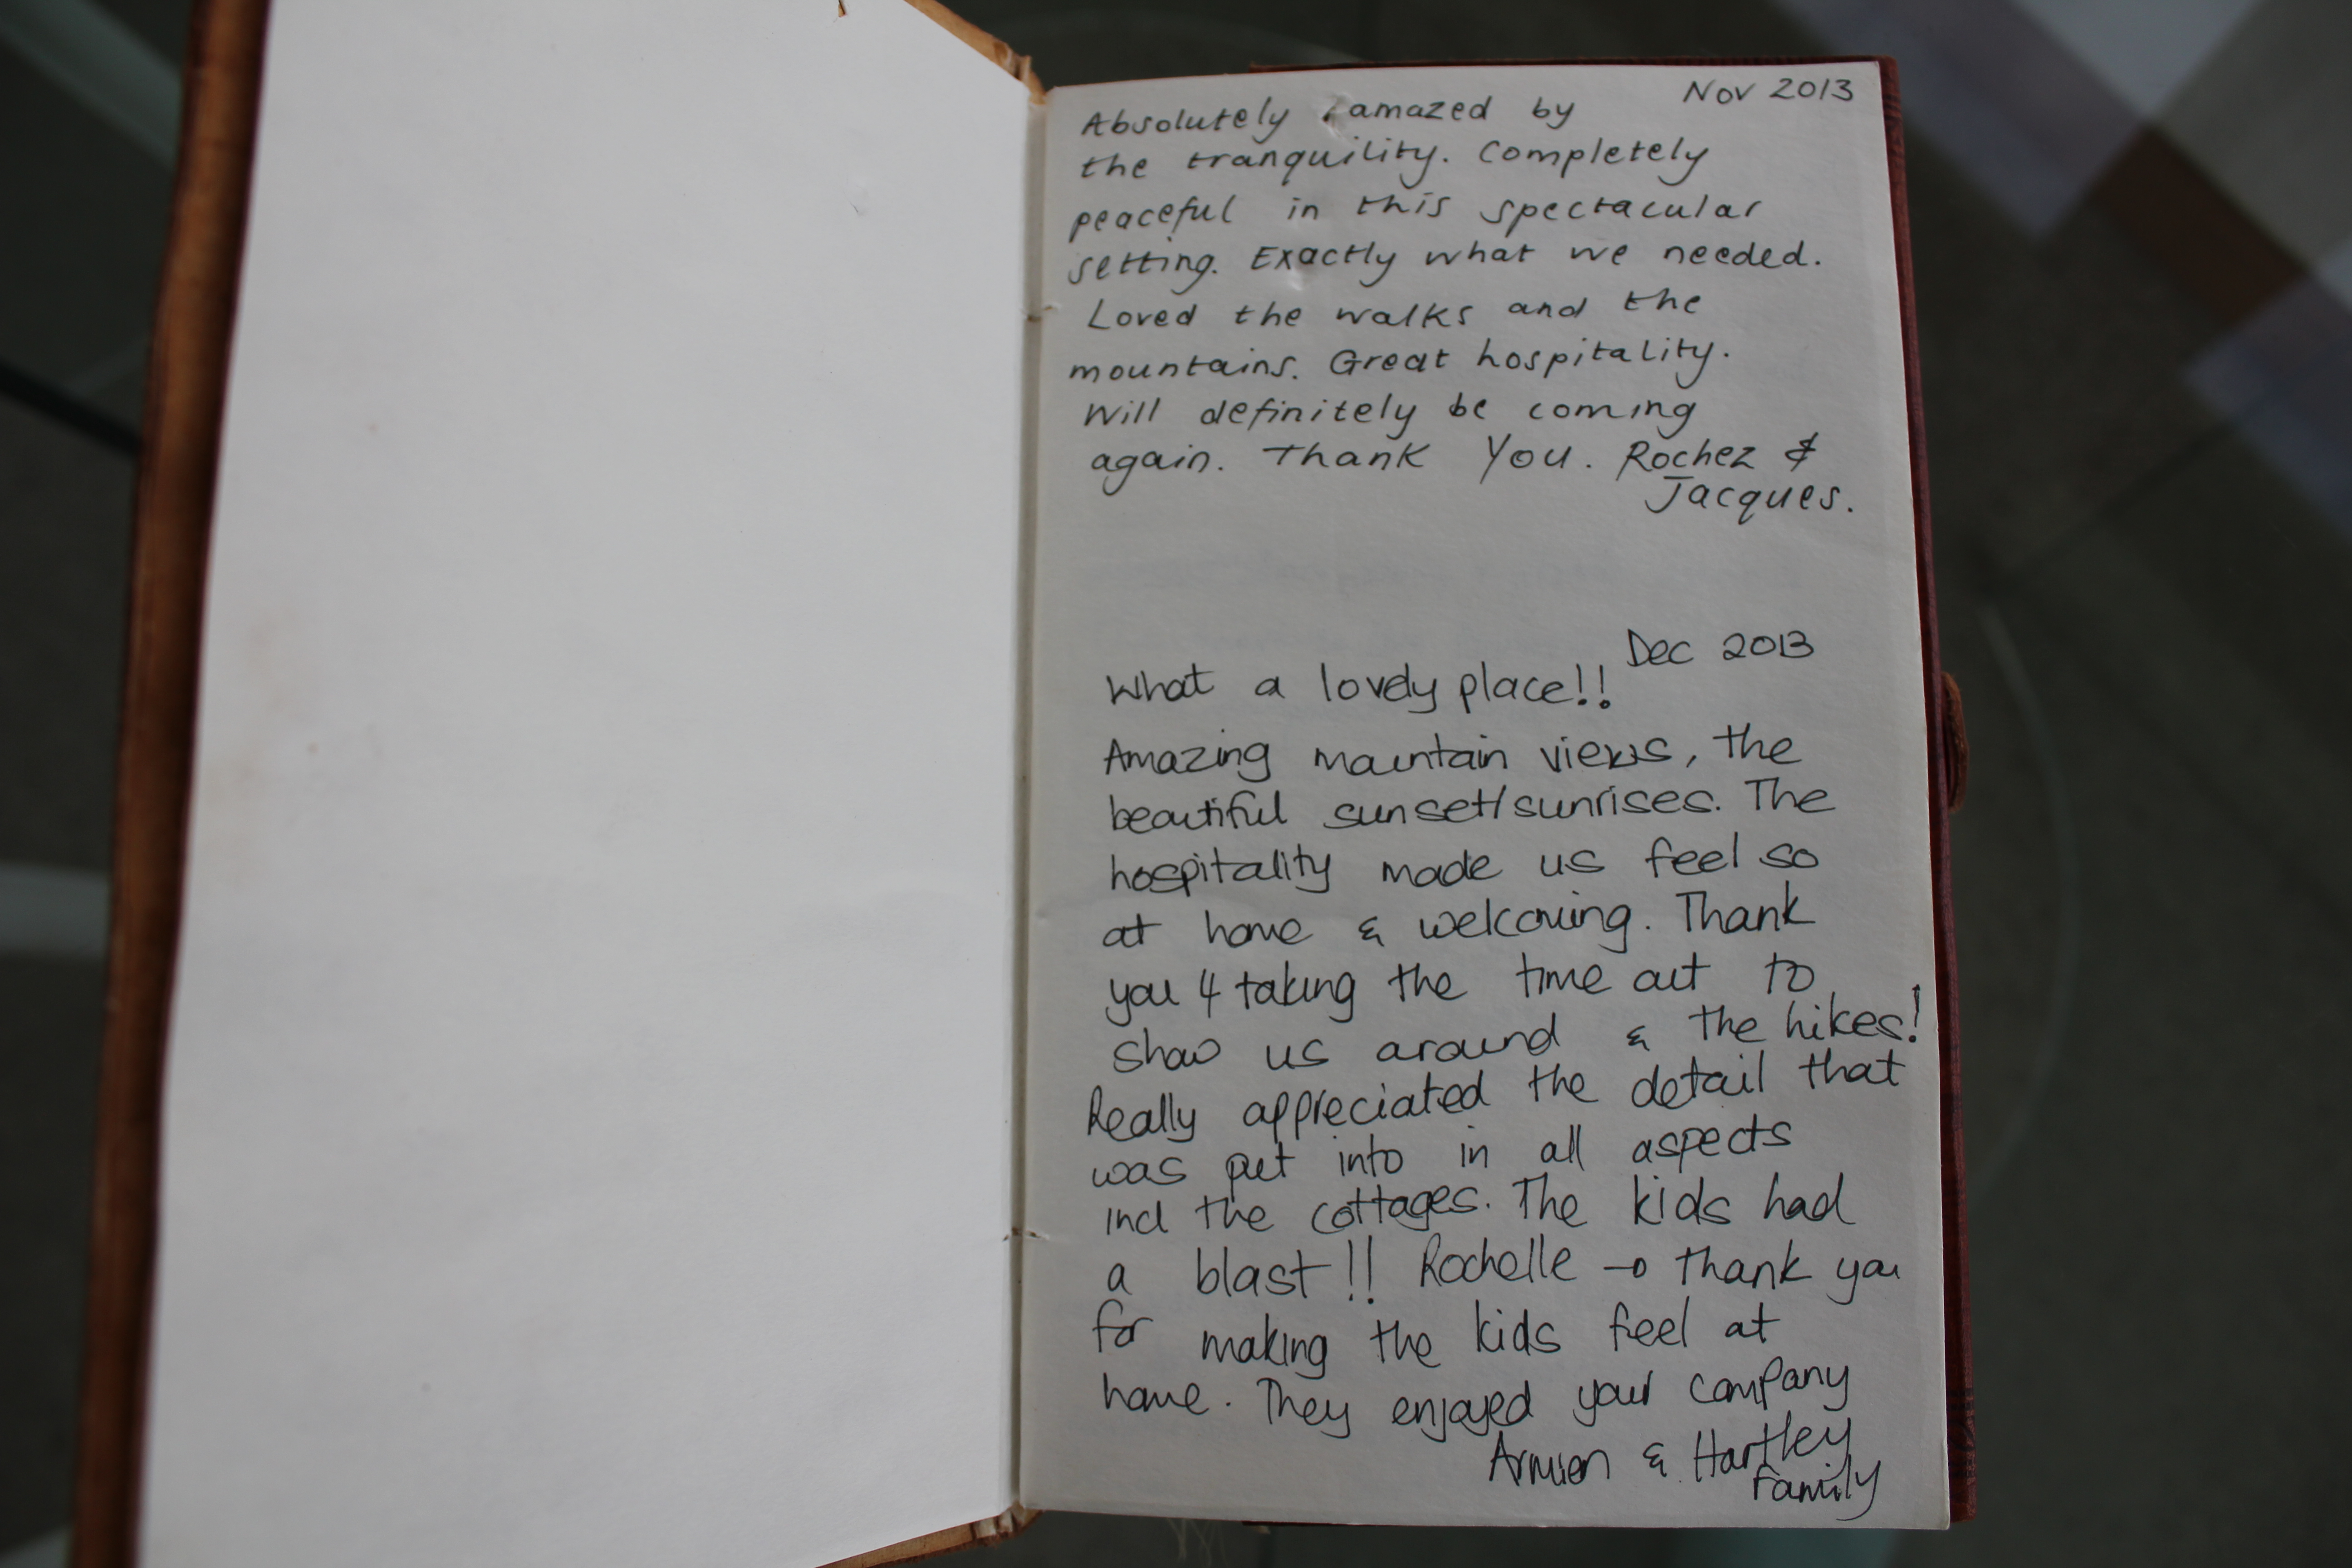 Nov 2013
Absolutely amazed by
the tranquility. Completely
peaceful in this spectacular
setting. Exactly what we needed.
Loved the walks and the
mountains. Great hospitality.
Will definitely be coming
again. Thank You. Rochez &
Jacques.
Dec 2013
What a lovely place!!
Amazing mountain views, the
beautiful sunset/sunrises. The
hospitality made us feel so
at home & welcoming. Thank
you 4 taking the time out to
show us around & the hikes!
Really appreciated the detail that
was put into in all aspects
incl the cottages. The kids had
a blast!! Rochelle → thank you
for making the kids feel at
home. They enjoyed your company
Armien & Hartley
Family